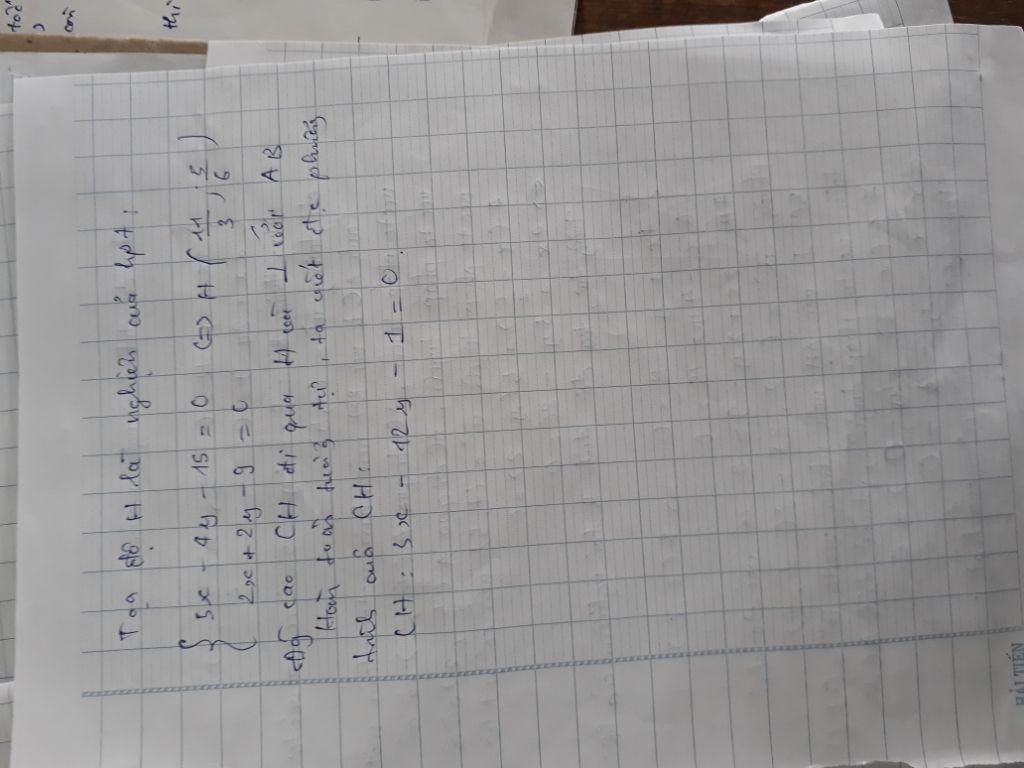 Tọa độ H là nghiệm của hpt:
{ 3x - 4y - 15 = 0 <=> H ( 11/3 , 5/6 )
2x + 2y - 9 = 0
đg cao CH đi qua H và ⊥ với AB
Hoàn toàn tương tự, ta viết đc phương
trình của CH:
CH: 3x - 12y - 1 = 0.
HẢI TIẾN
toè
thì